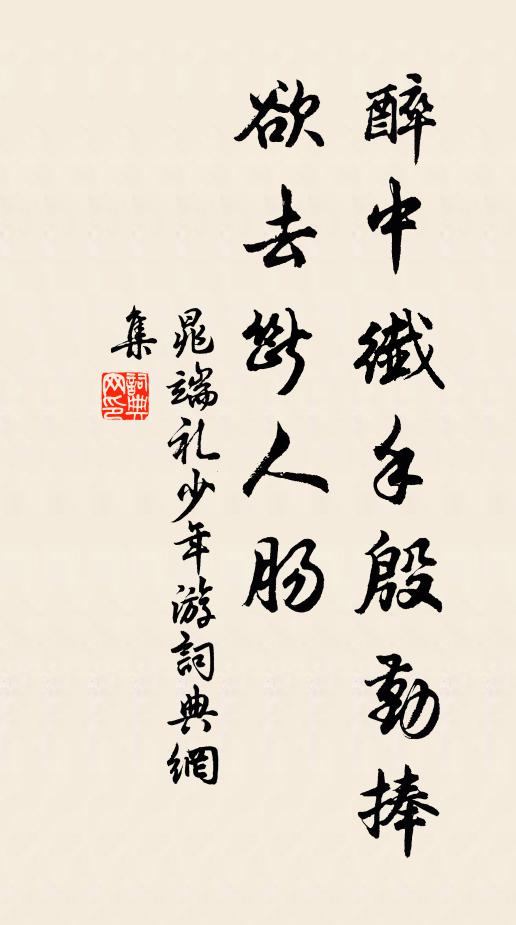 醉中纖手殷勤捧
欲去斷人腸
晁端礼少年游詞典網
集
詞典
网印